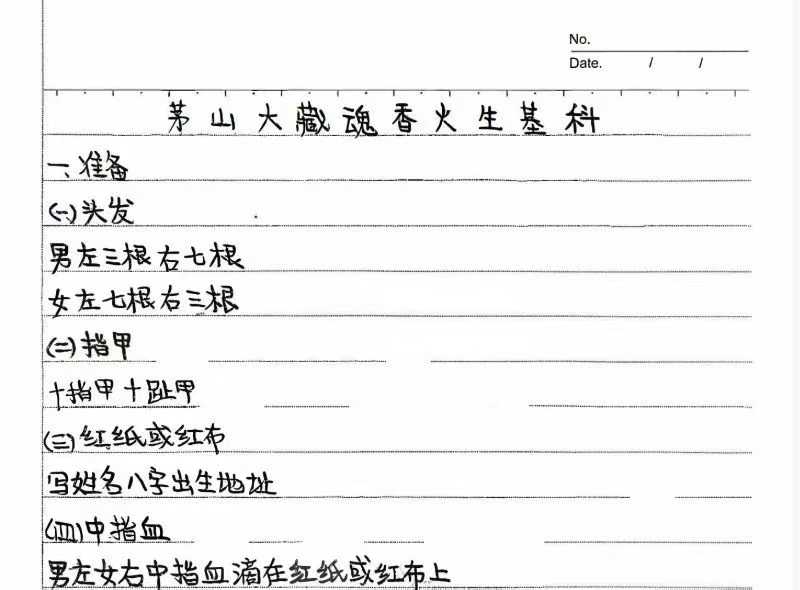 No.
Date. / /
茅山大藏魂香火生基科
一、准备
(一)头发
男左三根右七根
女左七根右三根
(二)指甲
十指甲十趾甲
(三)红纸或红布
写姓名八字出生地址
(四)中指血
男左女右中指血滴在红纸或红布上